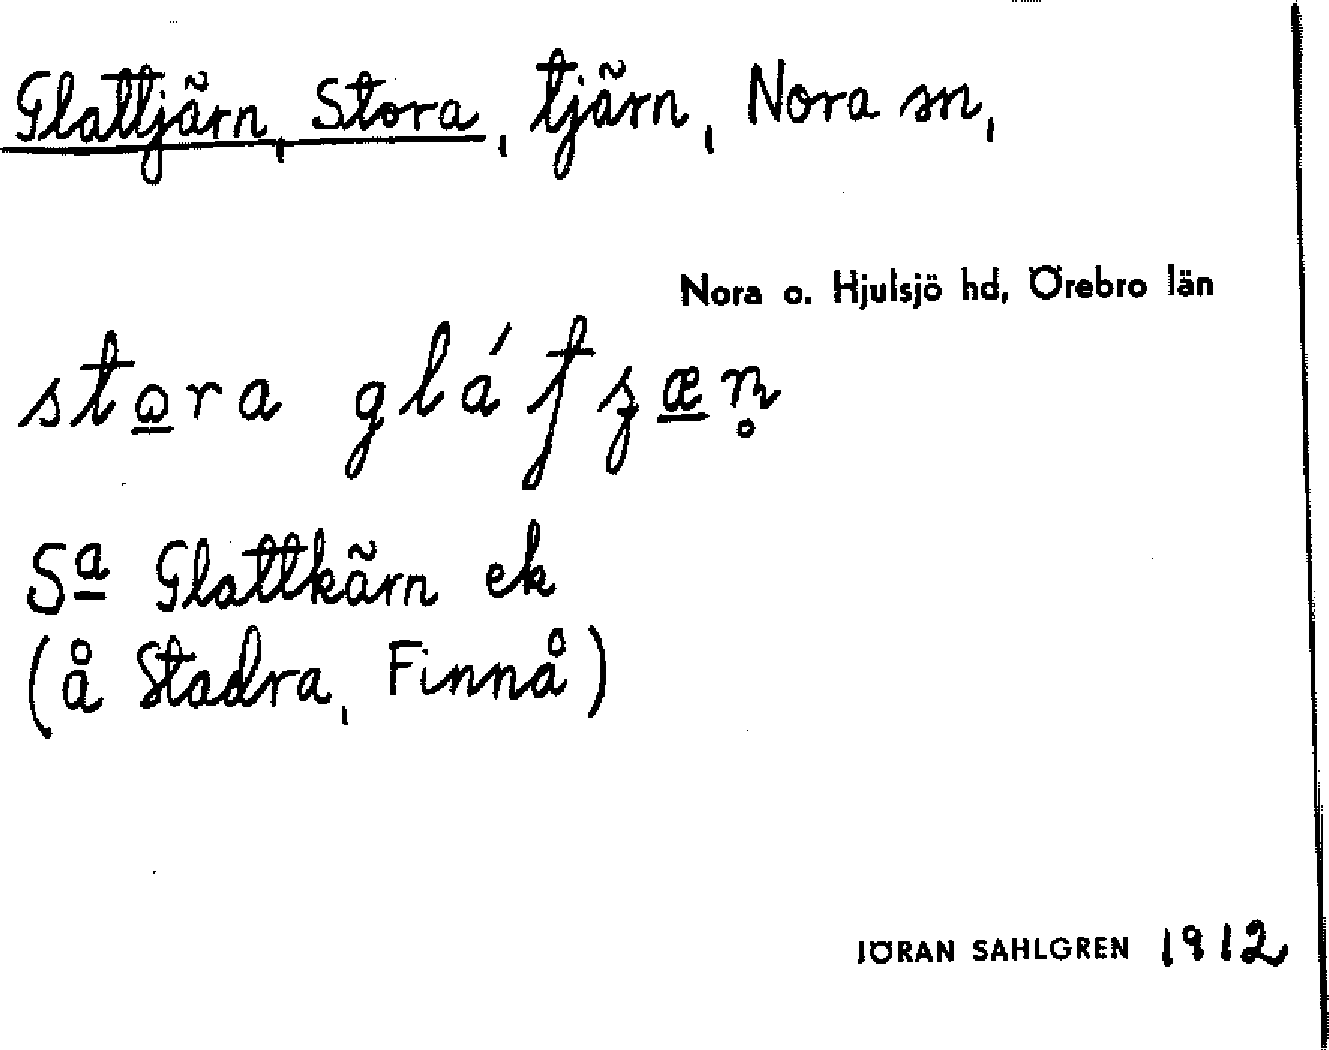 Glattjärn, Stora, tjärn, Nora sn,
Nora o. Hjulsjö hd, Örebro län
stora
Sa Glattkärn ek
(å Stadra, Finnå)
JÖRAN SAHLGREN 1912